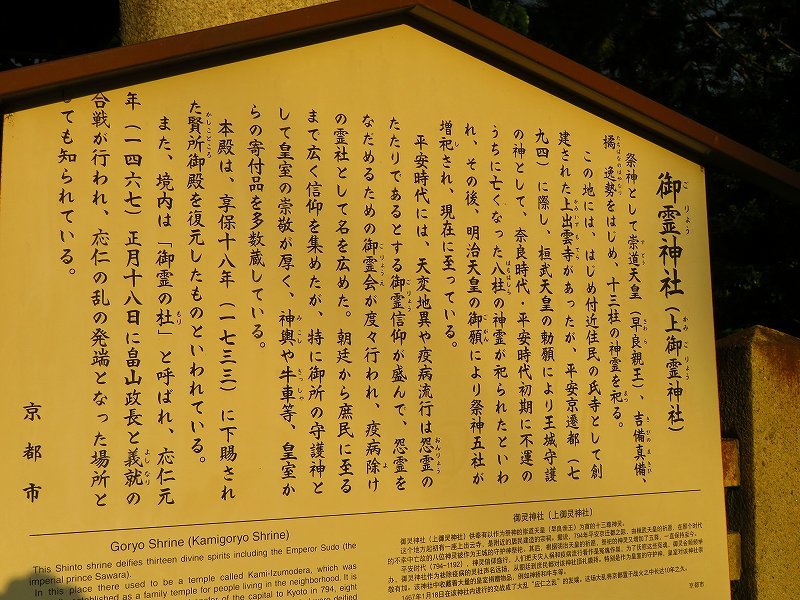 御霊神社（上御霊神社）
祭神として崇道天皇（早良親王）、吉備真備、
橘逸勢をはじめ、十三柱の神霊を祀る。
この地には、はじめ付近住民の氏寺として創
建された上出雲寺があったが、平安京遷都（七
九四）に際し、桓武天皇の勅願により王城守護
の神として、奈良時代・平安時代初期に不運の
うちに亡くなった八柱の神霊が祀られたといわ
れ、その後、明治天皇の御願により祭神五社が
増祀され、現在に至っている。
平安時代には、天変地異や疫病流行は怨霊の
たたりであるとする御霊信仰が盛んで、怨霊を
なだめるための御霊会が度々行われ、疫病除け
の霊社として名を広めた。朝廷から庶民に至る
まで広く信仰を集めたが、特に御所の守護神と
して皇室の崇敬が厚く、神輿や牛車等、皇室か
らの寄付品を多数蔵している。
本殿は、享保十八年（一七三三）に下賜され
た賢所御殿を復元したものといわれている。
また、境内は「御霊の杜」と呼ばれ、応仁元
年（一四六七）正月十八日に畠山政長と義就の
合戦が行われ、応仁の乱の発端となった場所と
しても知られている。
京都市
Goryo Shrine (Kamigoryo Shrine)
This Shinto shrine deifies thirteen divine spirits including the Emperor Sudo (the
imperial prince Sawara).
In this place there used to be a temple called Kami-Izumodera, which was
established as a family temple for people living in the neighborhood. It is
of the capital to Kyoto in 794, eight
were deified
御灵神社（上御灵神社）
御灵神社（上御灵神社）供奉有以作为祭神的崇道天皇（早良亲王）为首的十三尊神灵。
京都市